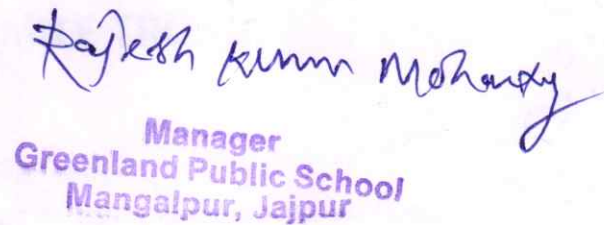 Rajesh Kumar Mohanty
Manager
Greenland Public School
Mangalpur, Jajpur